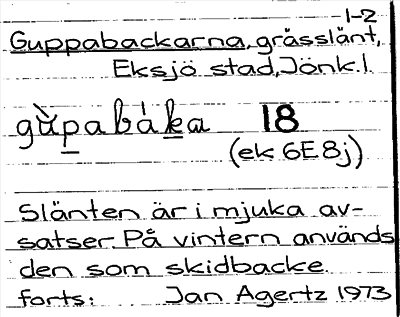 1-2
Guppabackarna, grässlänt,
Eksjö stad, Jönk. l.
gùpabáka 18
(ek 6E 8j)
Slänten är i mjuka av-
satser. På vintern används
den som skidbacke.
forts: Jan Agertz 1973